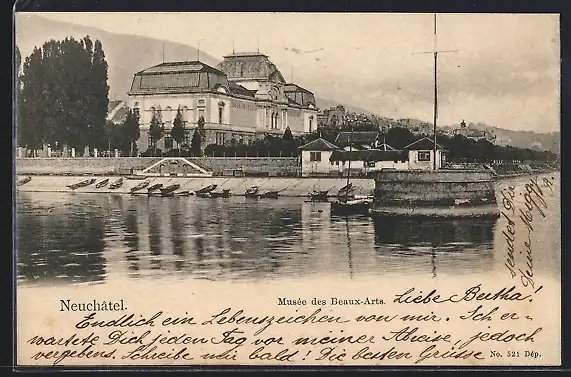 Neuchâtel.
Musée des Beaux-Arts.
Liebe Bertha!
Endlich ein Lebenszeichen von mir. Ich er-
wartete Dich jeden Tag vor meiner Abreise, jedoch
vergebens. Schreibe mir bald! Die besten Grüsse
sendet Dir
Deine
No. 521 Dép.